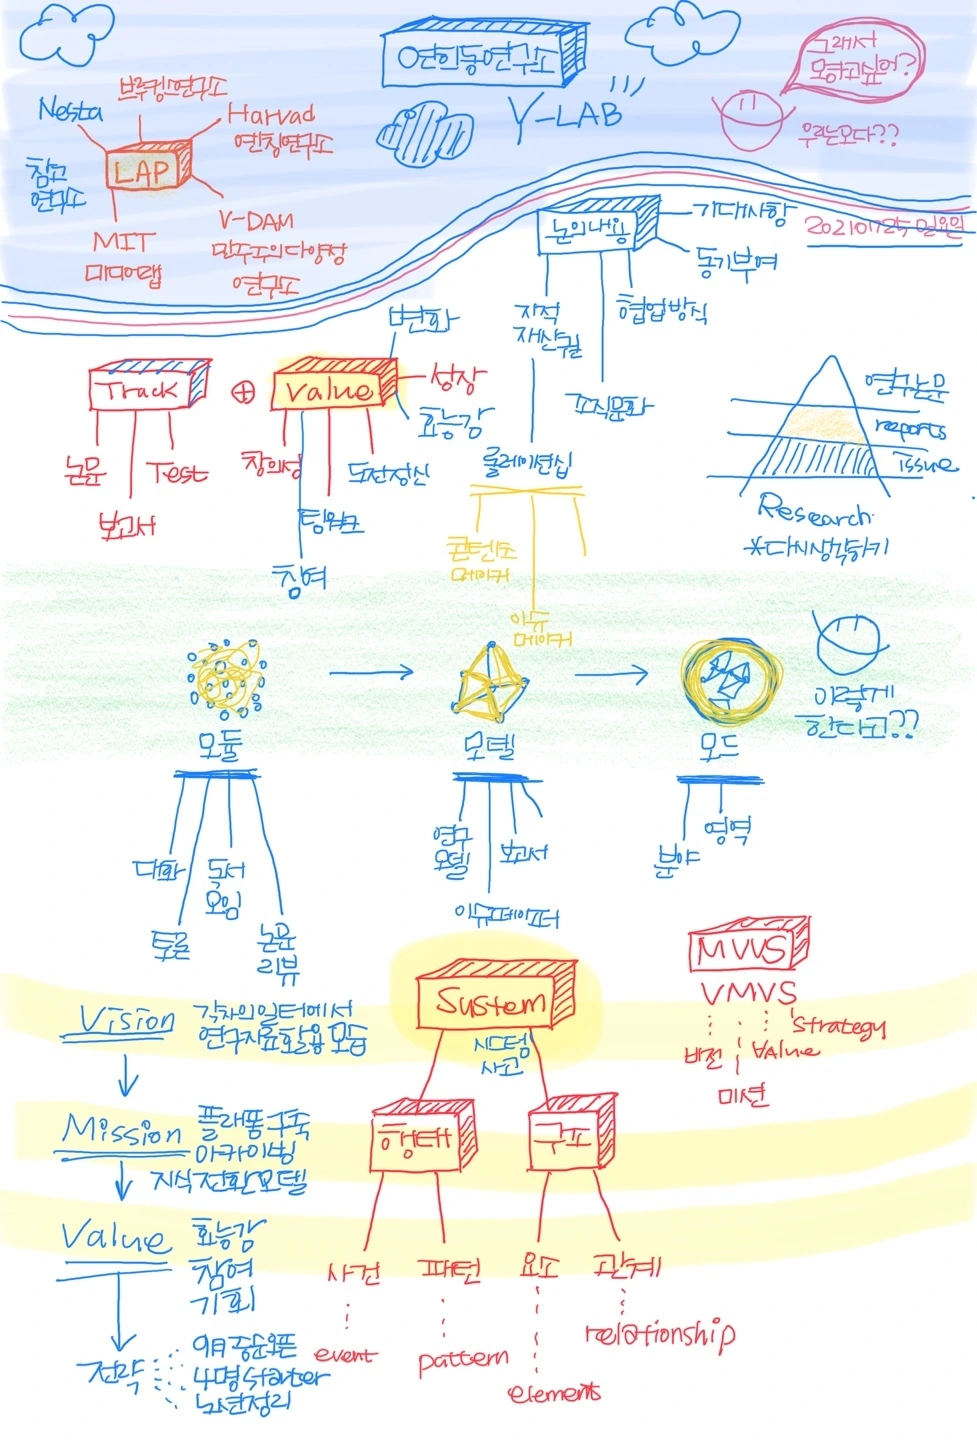 연희동연구소
Y-LAB
그래서
모하고싶어?
우리는모다??
Nesta
브루킹스연구소
Harvad
옌칭연구소
LAP
참고
연구소
MIT
미디어랩
V-DAM
민주주의다양성
연구소
20210725 일요일
논의내용
기대사항
동기부여
지적
재산권
협업방식
조직문화
룰레이션십
콘텐츠
메이커
이슈
메이커
Track
논문
보고서
Test
⊕
Value
변화
성장
효능감
창의성
도전정신
팀워크
참여
연구논문
reports
issue
Research
*다시생각하기
모듈
모델
모드
이렇게
한다고??
대화
토론
독서
모임
논문
리뷰
연구
모델
이슈페이퍼
보고서
분야
영역
Vision
각자의일터에서
연구자료활용 모듈
Mission
플래폼구축
아카이빙
지식전환모델
Value
효능감
참여
기회
전략
9月 중순오픈
4명 starter
노션정리
System
시스템
사고
행태
구조
사건
패턴
요소
관계
event
pattern
element
relationship
MVVS
VMVS
비전
미션
Value
strategy